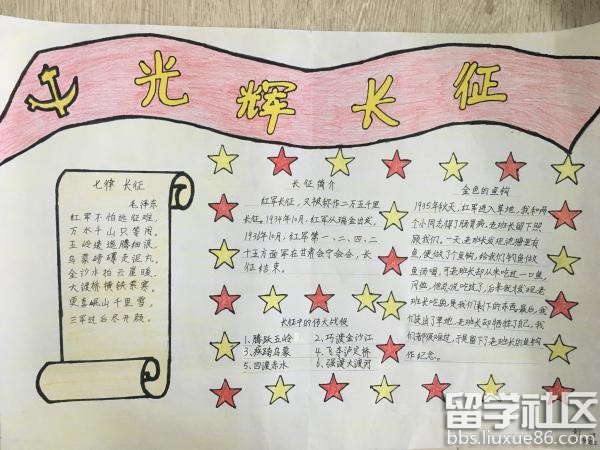 光辉长征
七律 长征
毛泽东
红军不怕远征难，
万水千山只等闲。
五岭逶迤腾细浪，
乌蒙磅礴走泥丸。
金沙水拍云崖暖，
大渡桥横铁索寒。
更喜岷山千里雪，
三军过后尽开颜。
长征简介
红军长征，又被称作二万五千里
长征。1934年10月，红军从瑞金出发，
1936年10月，红军第一、二、四、二
十五方面军在甘肃会宁会合，长
征结束。
长征中的伟大战役
1、腾跃五岭 2、巧渡金沙江
3、疾跨乌蒙 4、飞夺泸定桥
5、四渡赤水 6、强渡大渡河
金色的鱼钩
1935年秋天，红军进入草地，我和两
个小同志得了肠胃病，老班长留下照
顾我们。一天，老班长发现池塘里有
鱼，便做了个鱼钩，给我们钓鱼做
鱼汤喝，可老班长却从来吃过一口鱼，
问他，他总说吃过了，后来我发现老
班长吃的是我们剩下的东西。最后，我
们走出了草地，老班长却牺牲了自己，我
们都很难过，于是留下了老班长的鱼钩
作纪念。
留学社区
bbs.liuxue86.com